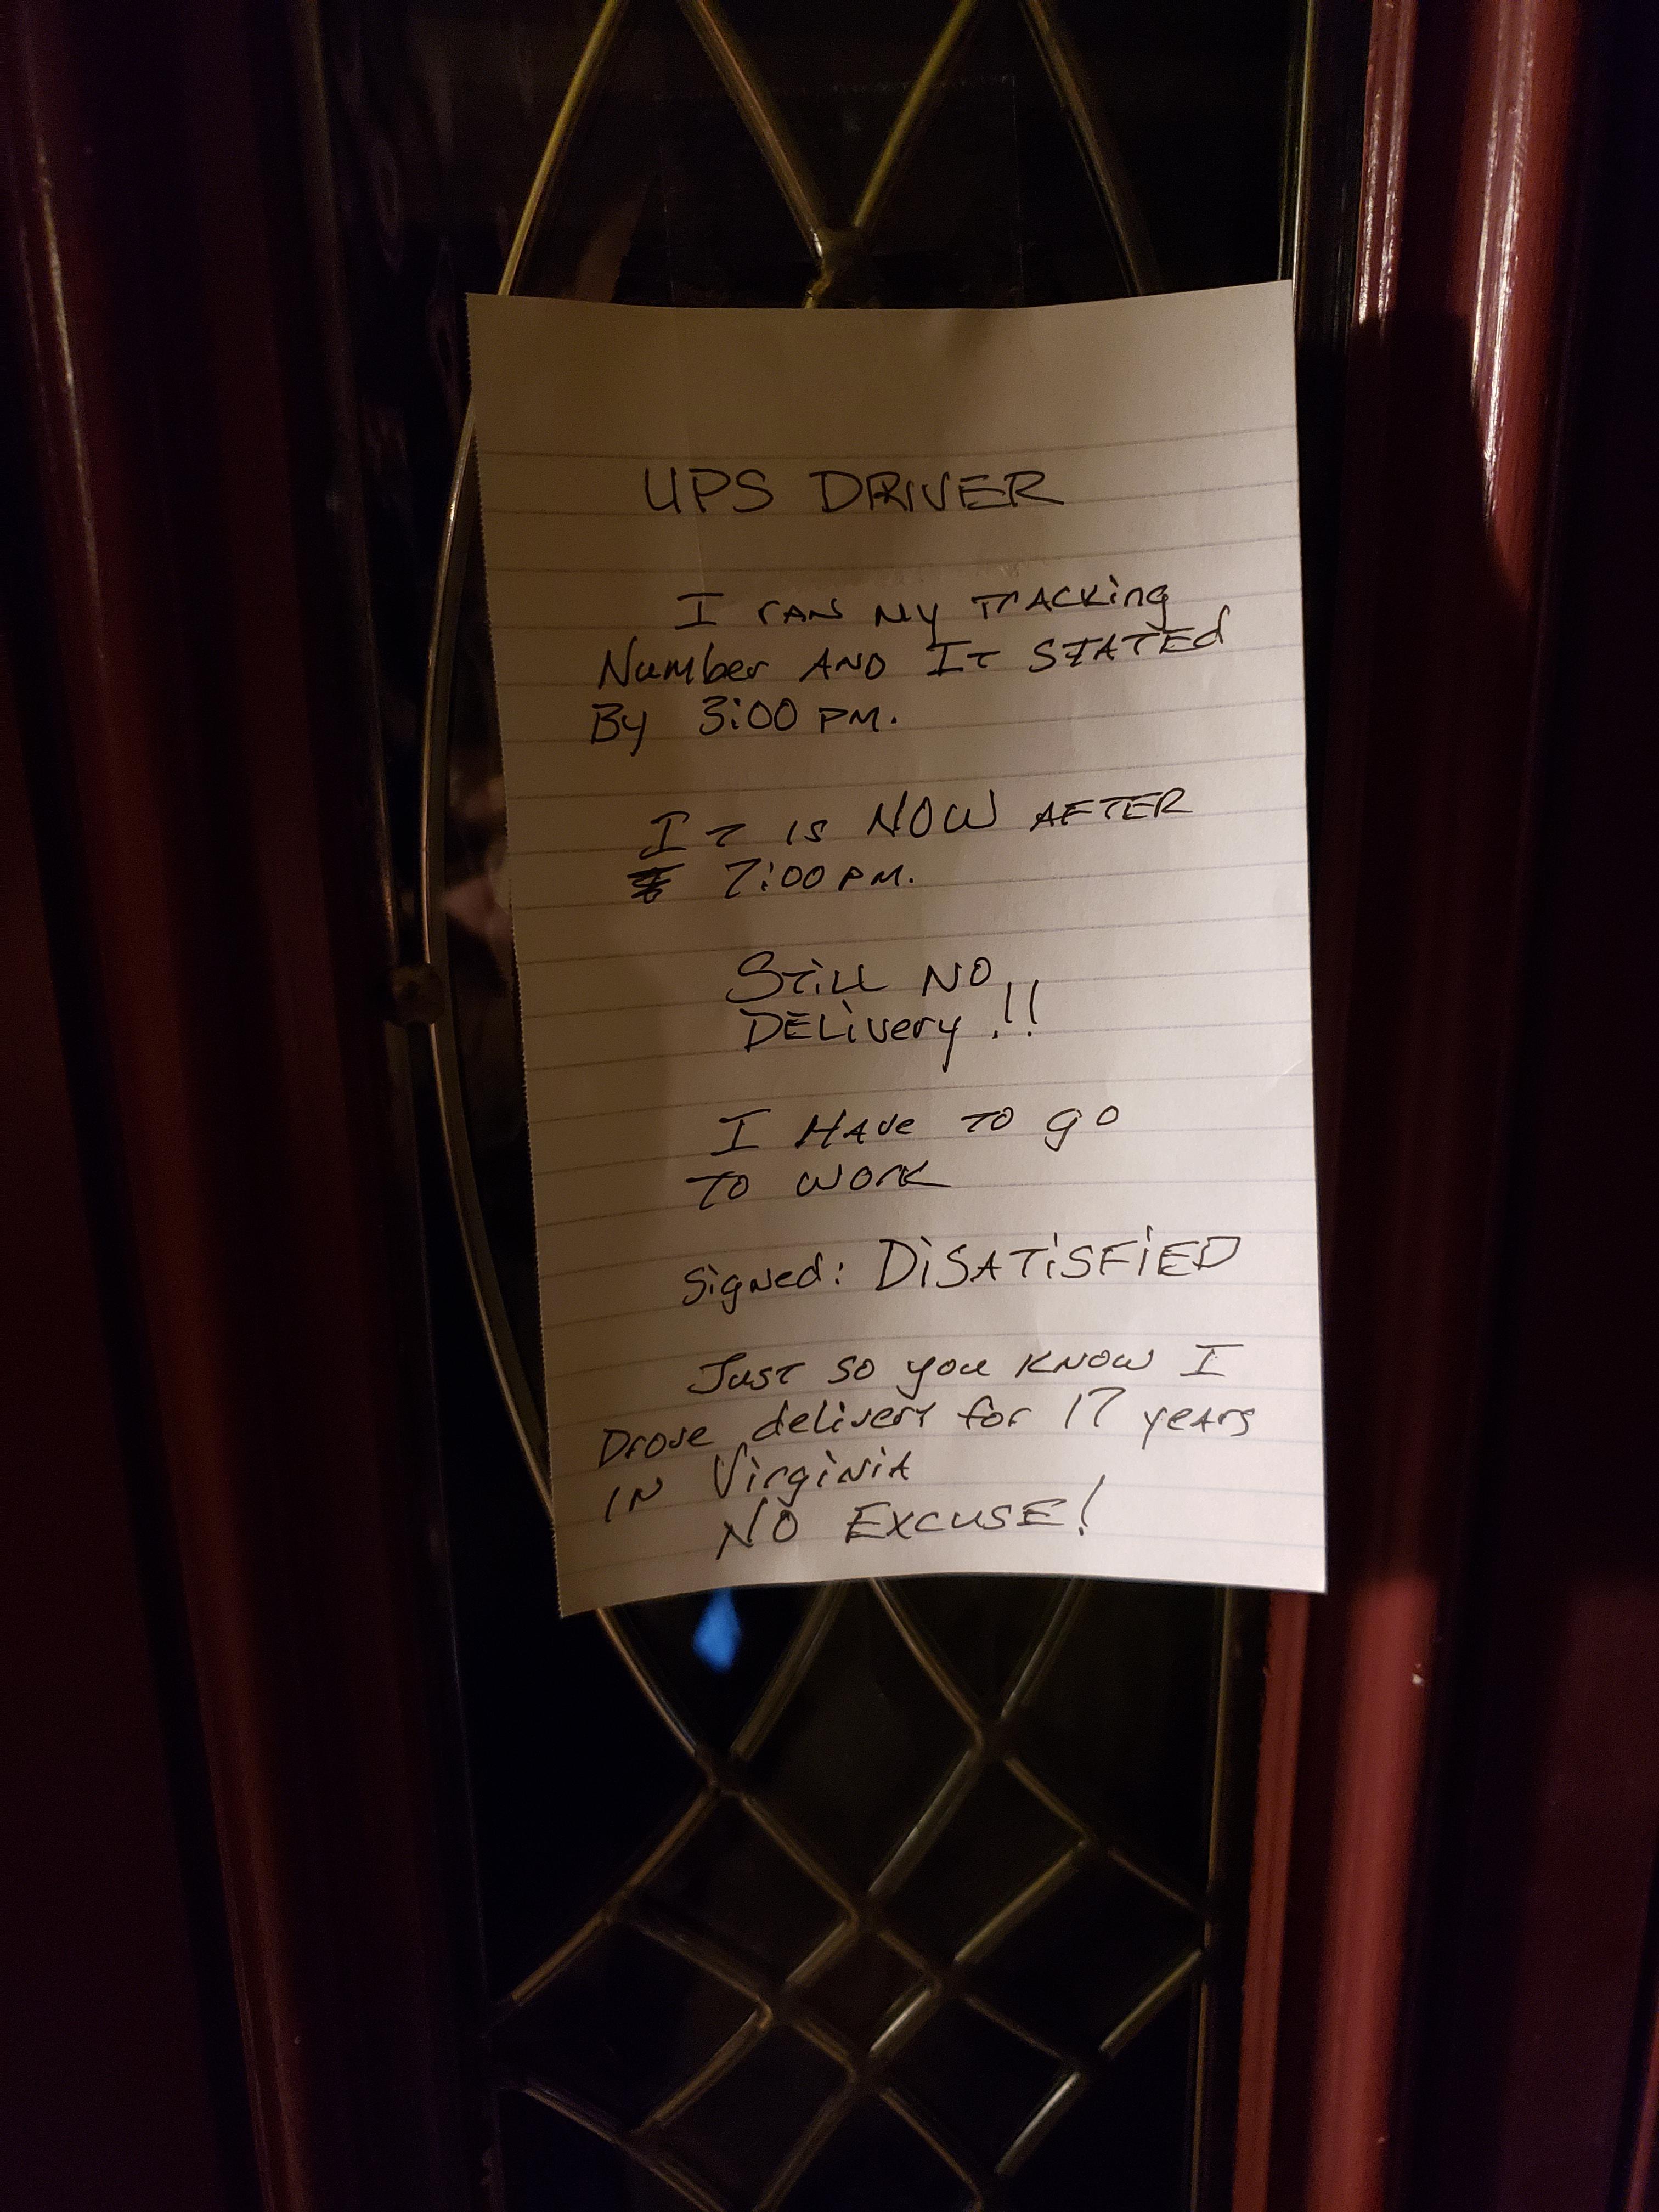 UPS DRIVER
I ran my tracking
Number and It stated
By 3:00 PM.
It is NOW AFTER
7:00 PM.
Still NO
Delivery !!
I Have to go
to work
Signed: DiSATiSFiED
Just so you know I
Drove delivery for 17 years
in Virginia
NO EXCUSE!